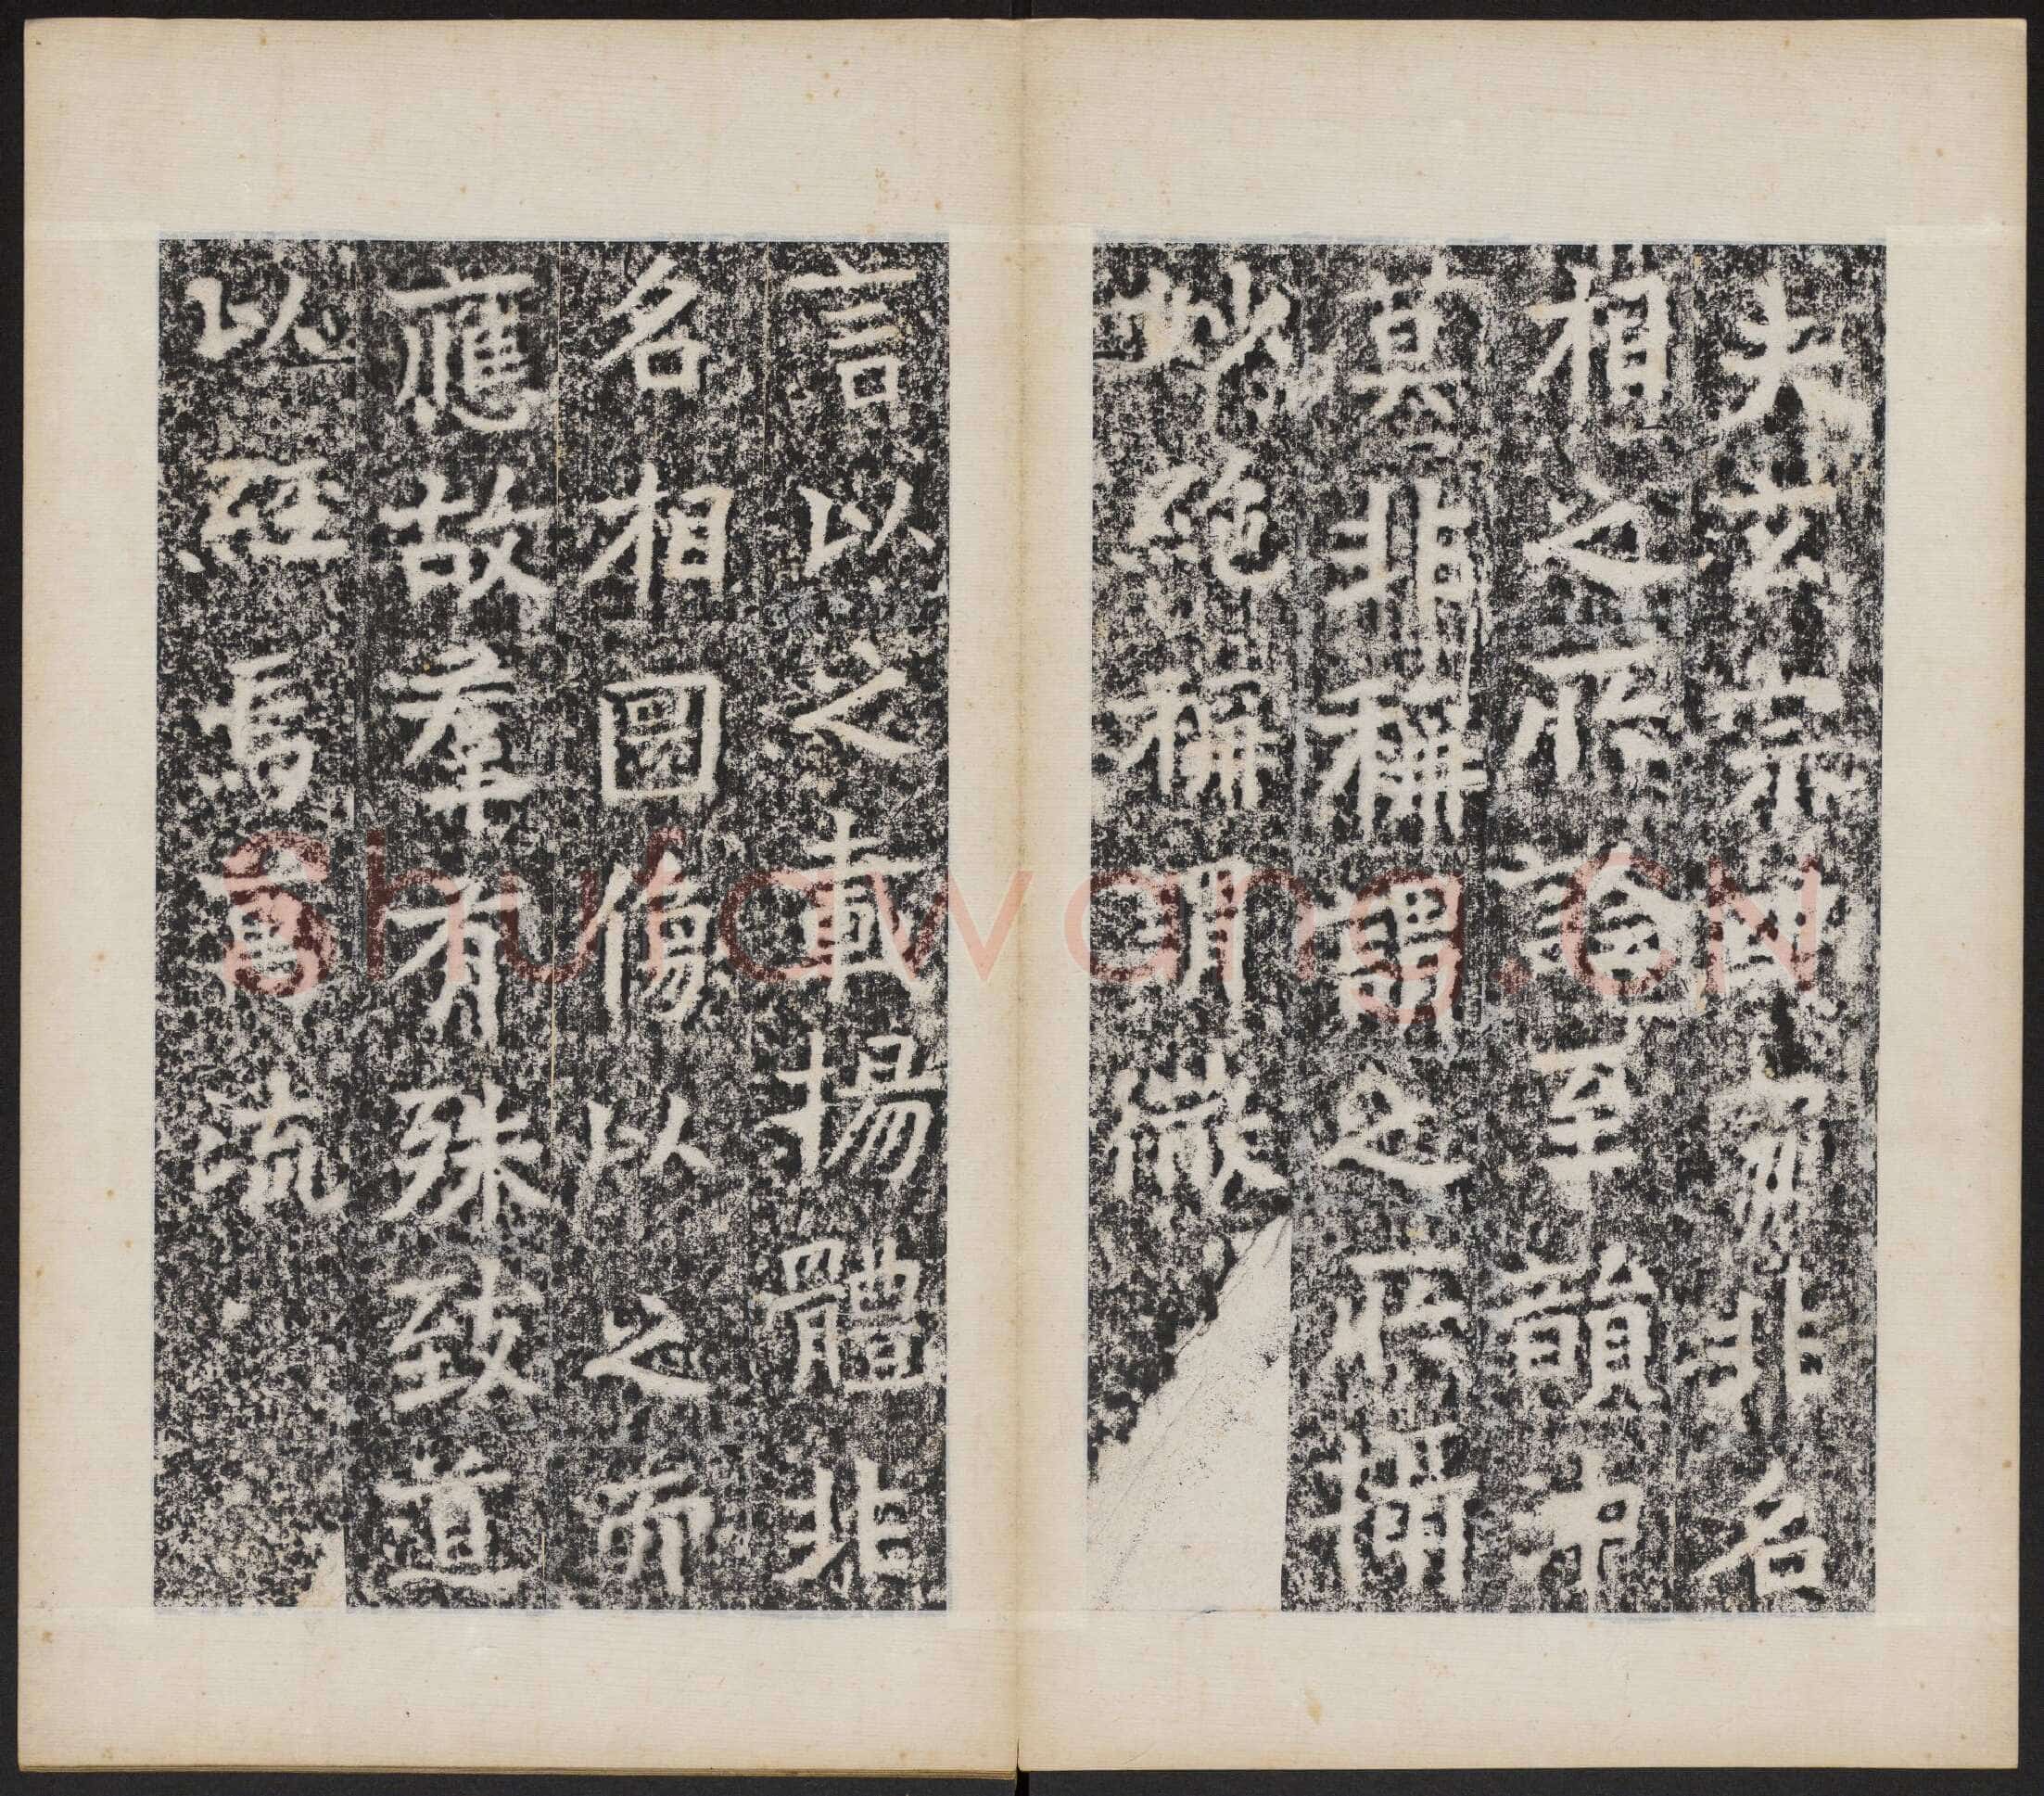 夫玄宗幽寂非名
相之所至韻沖
莫非稱謂之所
妙絶稱微
言以之載揚體非
名相圖像以之而
應故羣有殊致道
以經焉萬流
Shufawang.CN